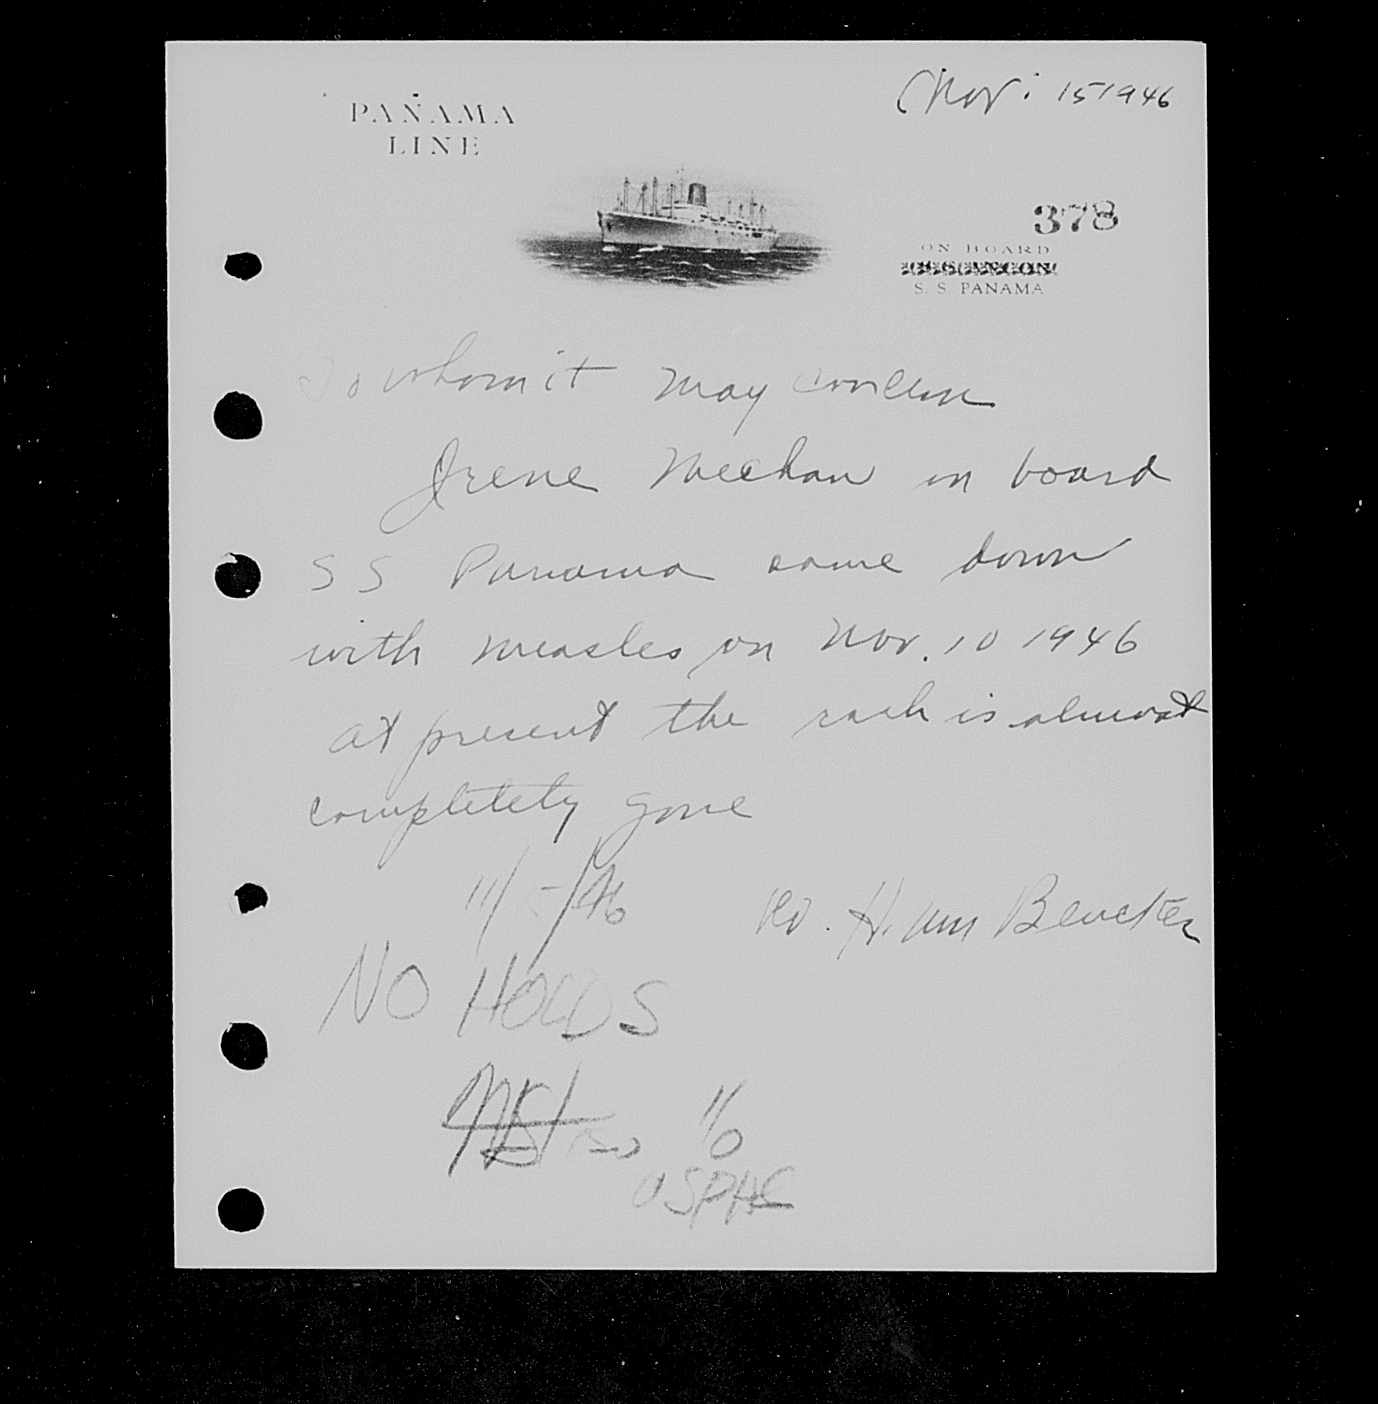 Nov. 15 1946
PANAMA
LINE
378
ON BOARD
S. S. ANCON
S. S. PANAMA
To whom it may concern
Irene Meehan on board
S S Panama came down
with measles on Nov. 10 1946
at present the rash is almost
completely gone
11/15/46
H. Wm
NO HOLDS
USPHS